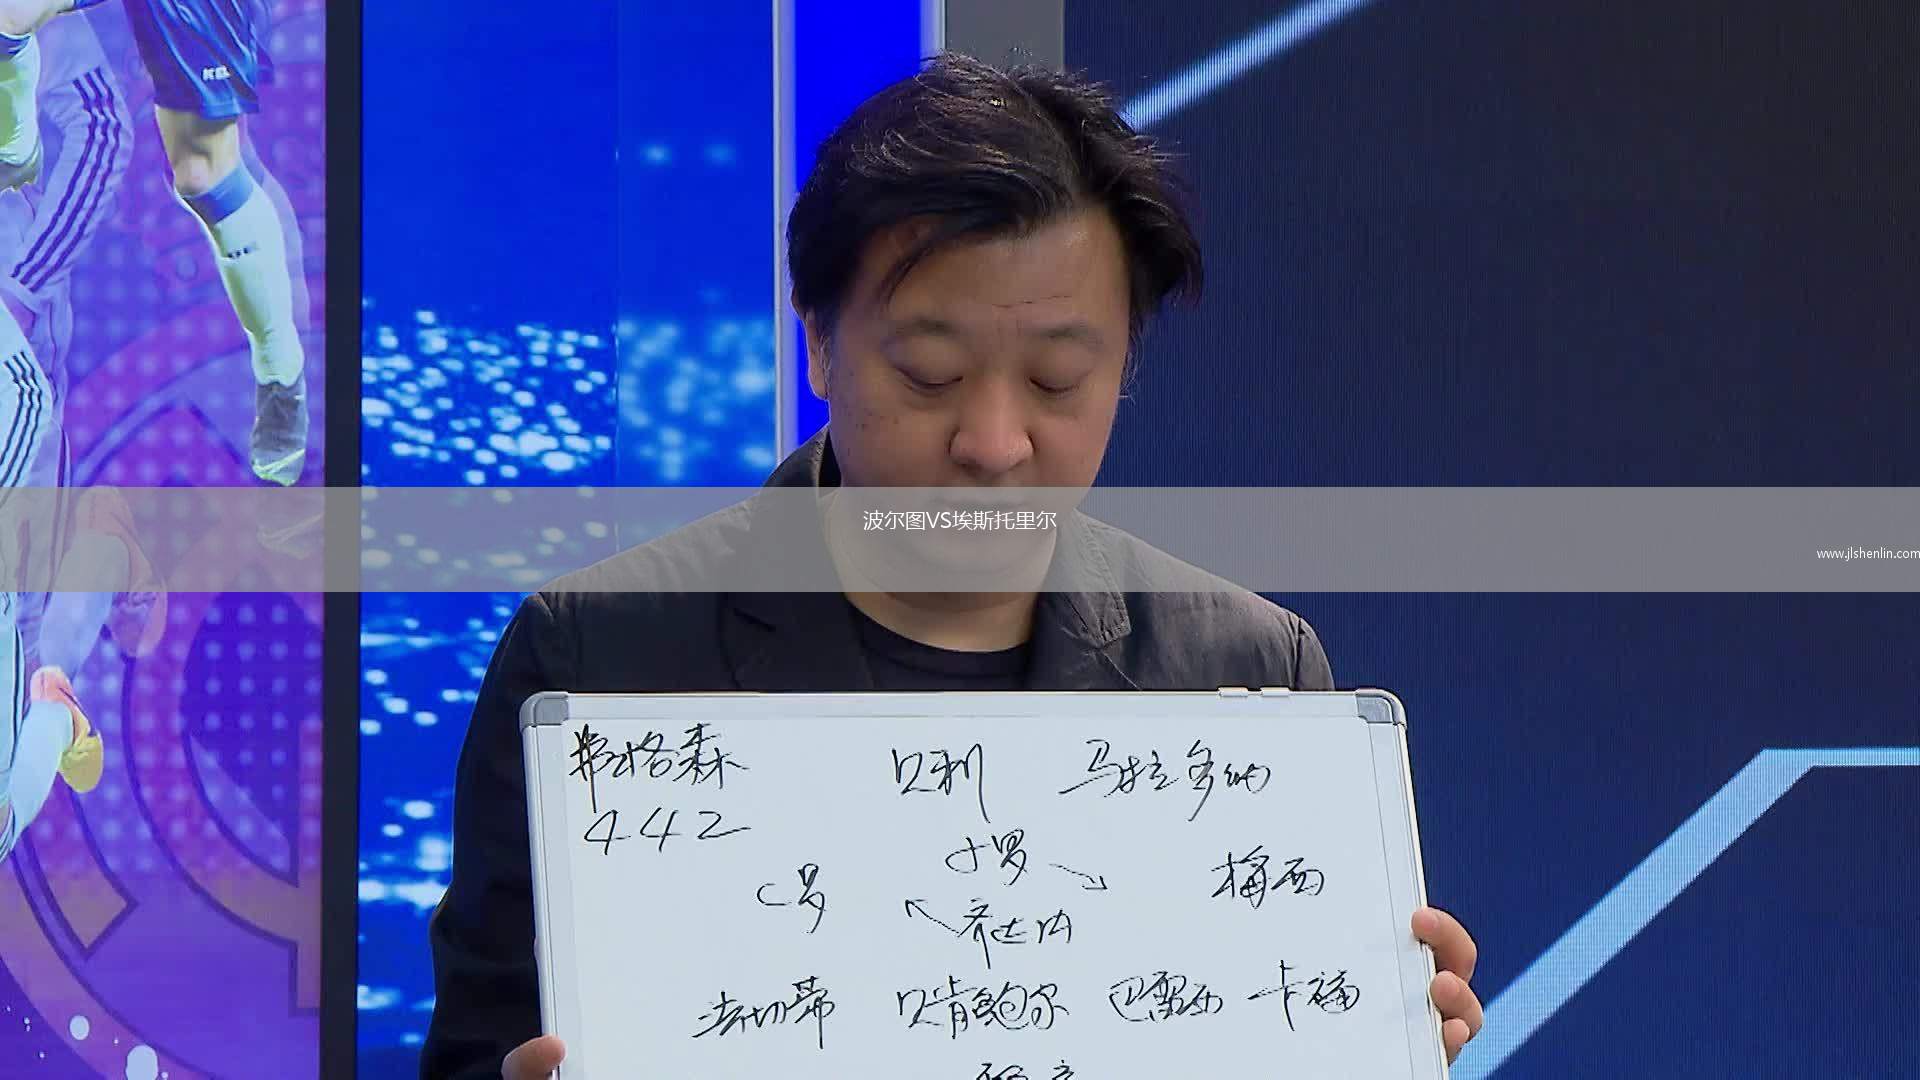 KEL
波尔图VS埃斯托里尔
www.jlshenlin.com
弗格森 贝利 马拉多纳
442
小罗
C罗 梅西
齐达内
法切蒂 贝肯鲍尔 巴雷西 卡福